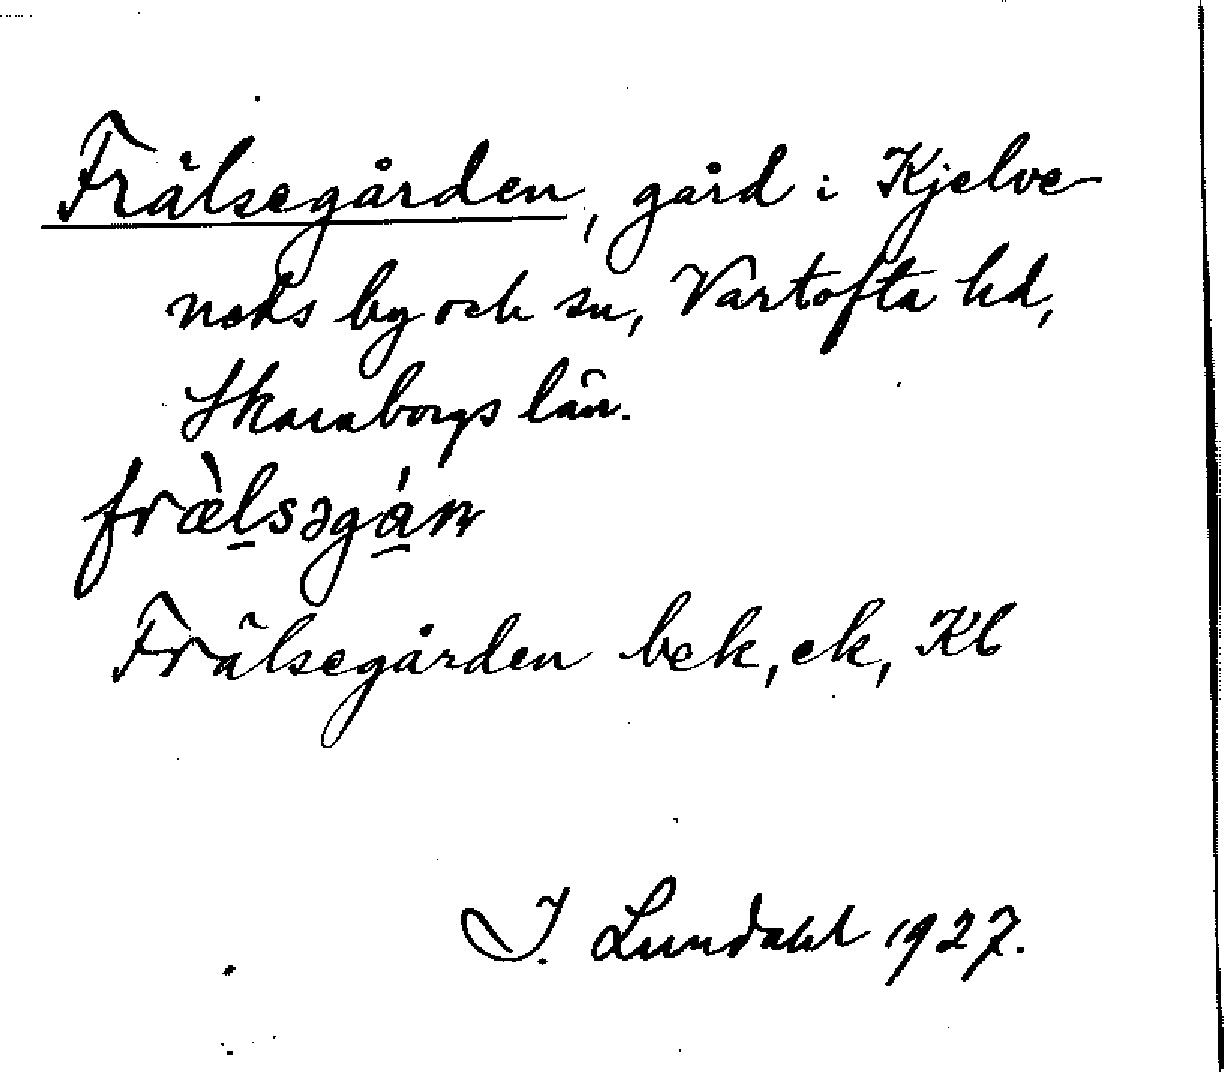 Frälsegården, gård i Kjelve-
neds by och sn, Vartofta hd,
Skaraborgs län.
fræ̀l̠səgá̠ɳ
Frälsegården bek, ek, Kb
I. Lundahl 1927.